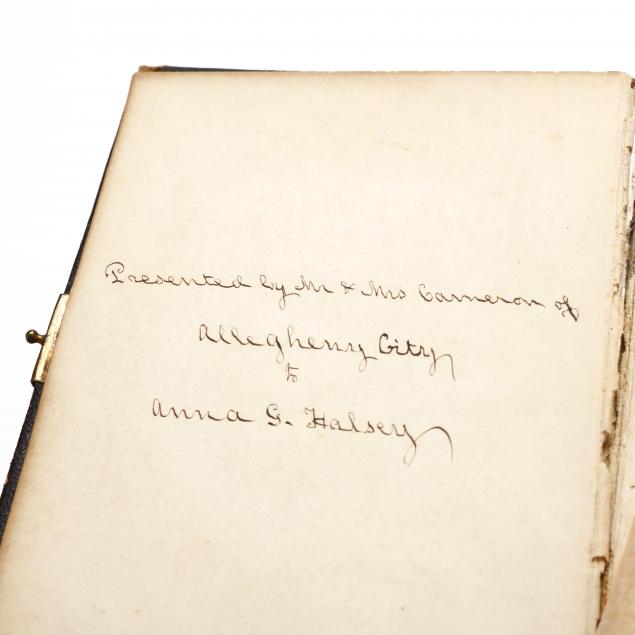 Presented by Mr & Mrs Cameron of
Allegheny City
to
Anna G. Halsey